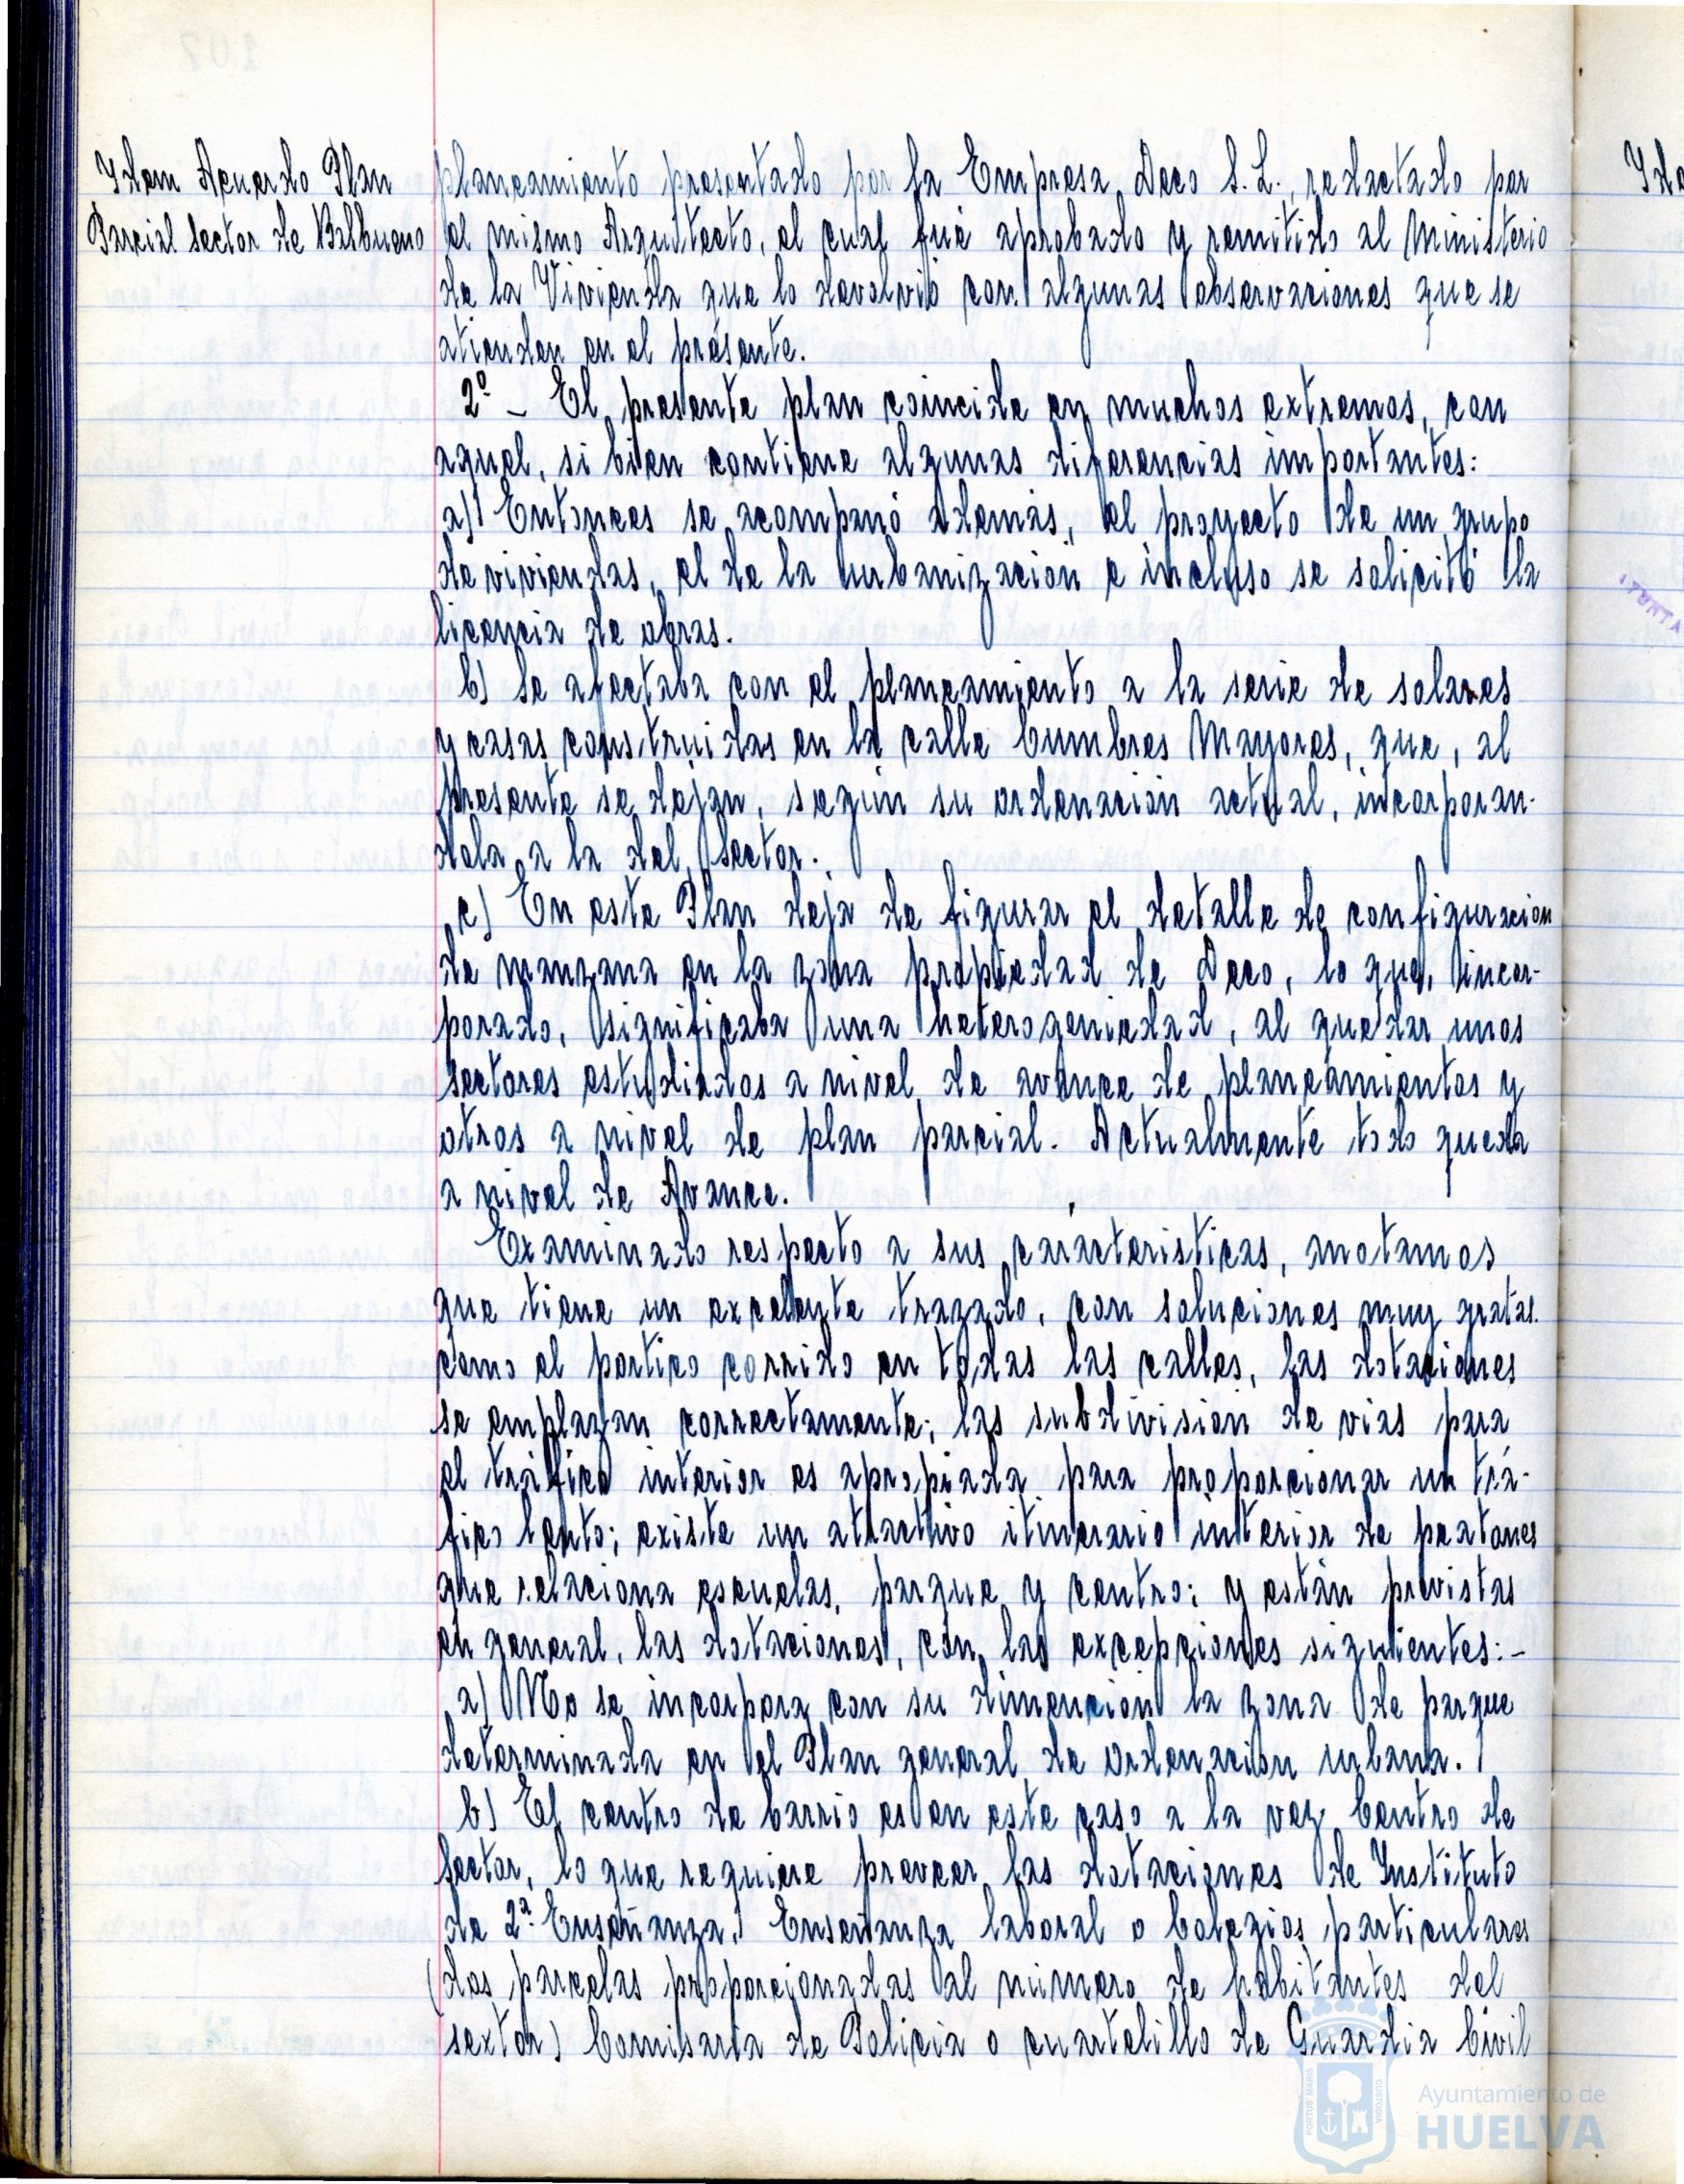 Idem Acuerdo Plan
Parcial Sector de Balbueno
planeamiento presentado por la Empresa Deco S.L., redactado por
el mismo Arquitecto, el cual fué aprobado y remitido al Ministerio
de la Vivienda que lo devolvió con algunas observaciones que se
atienden en el présente.
2º - El presente plan coincide en muchos extremos, con
aquel, si bien contiene algunas diferencias importantes:
a) Entonces se acompañó además, el proyecto de un grupo
de viviendas, el de la urbanización e incluso se solicitó la
licencia de obras.
b) Se afectaba con el planeamiento a la serie de solares
y casas construidas en la calle Cumbres Mayores, que, al
presente se dejan, según su ordenación actual, incorporan-
dola a la del Sector.
c) En este Plan deja de figurar el detalle de configuración
de manzana en la zona propiedad de Deco, lo que, incor-
porado, significaba una heterogeniedad, al quedar unos
sectores estudiados a nivel de avance de planeamientos y
otros a nivel de plan parcial. Actualmente todo queda
a nivel de Avance.
Examinado respecto a sus características, anotamos
que tiene un excelente trazado, con soluciones muy gratas
como el portico corrido en todas las calles, las dotaciones
se emplazan correctamente; las subdivisión de vias para
el tráfico interior es apropiada para proporcionar un trá-
fico lento; existe un atractivo itinerario interior de peatones
que relaciona escuelas, parque y centro; y están previstas
en general, las dotaciones, con las excepciones siguientes:-
a) No se incorpora con su dimención la zona de parque
determinada en el Plan general de ordenación urbana.
b) El centro de barrio es en este caso a la vez Centro de
Sector, lo que requiere preveer las dotaciones de Instituto
de 2ª Enseñanza, Enseñanza laboral o Colegios particulares
(dos parcelas proporcionadas al número de habitantes del
sextor) Comisaria de Policia o cuartelillo de Guardia Civil
Ayuntamiento de
HUELVA
PORTUS MARIS
CUSTODIA